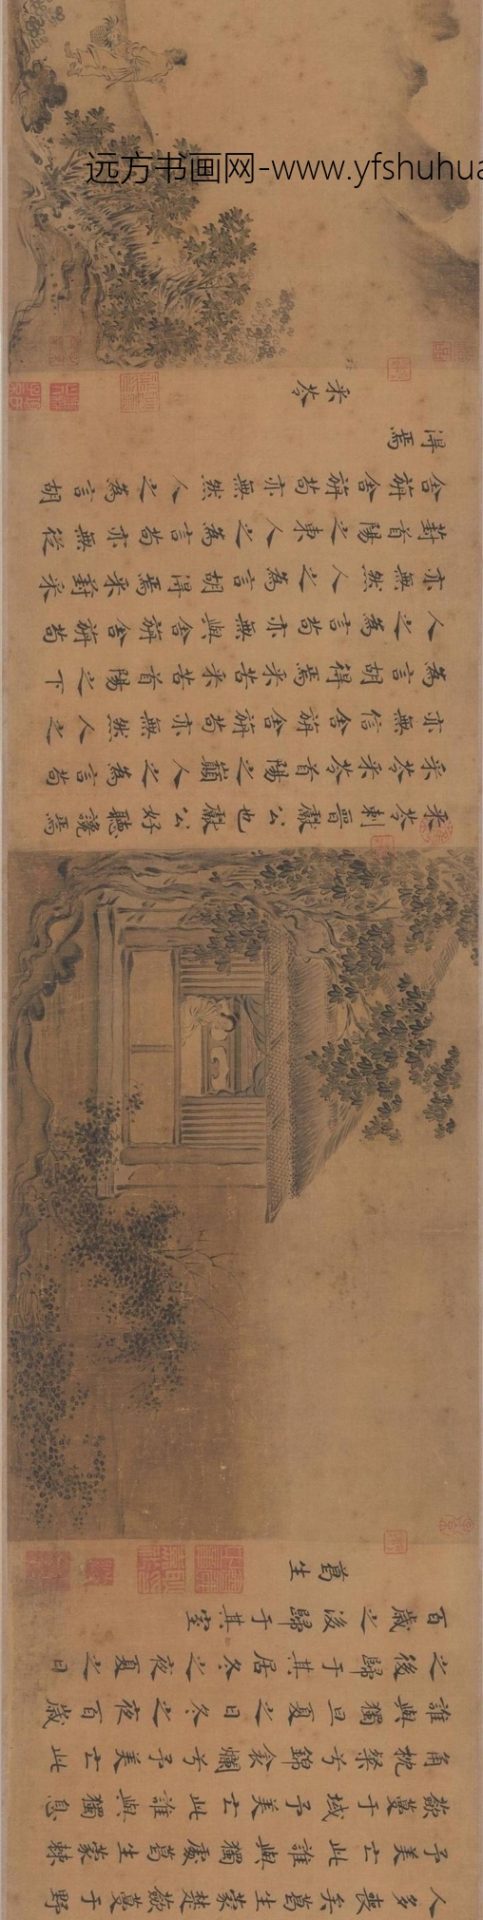 远方书画网-www.yfshuhua
人多喪矣葛生蒙楚蘞蔓于野
予美亡此誰與獨處葛生蒙棘
蘞蔓于域予美亡此誰與獨息
角枕粲兮錦衾爛兮予美亡此
誰與獨旦夏之日冬之夜百歲
之後歸于其居冬之夜夏之日
百歲之後歸于其室
葛生
采苓刺晉獻公也獻公好聽讒焉
采苓采苓首陽之巔人之為言苟
亦無信舍旃舍旃苟亦無然人之
為言胡得焉采苦采苦首陽之下
人之為言苟亦無與舍旃舍旃苟
亦無然人之為言胡得焉采葑采
葑首陽之東人之為言苟亦無從
舍旃舍旃苟亦無然人之為言胡
得焉
采苓